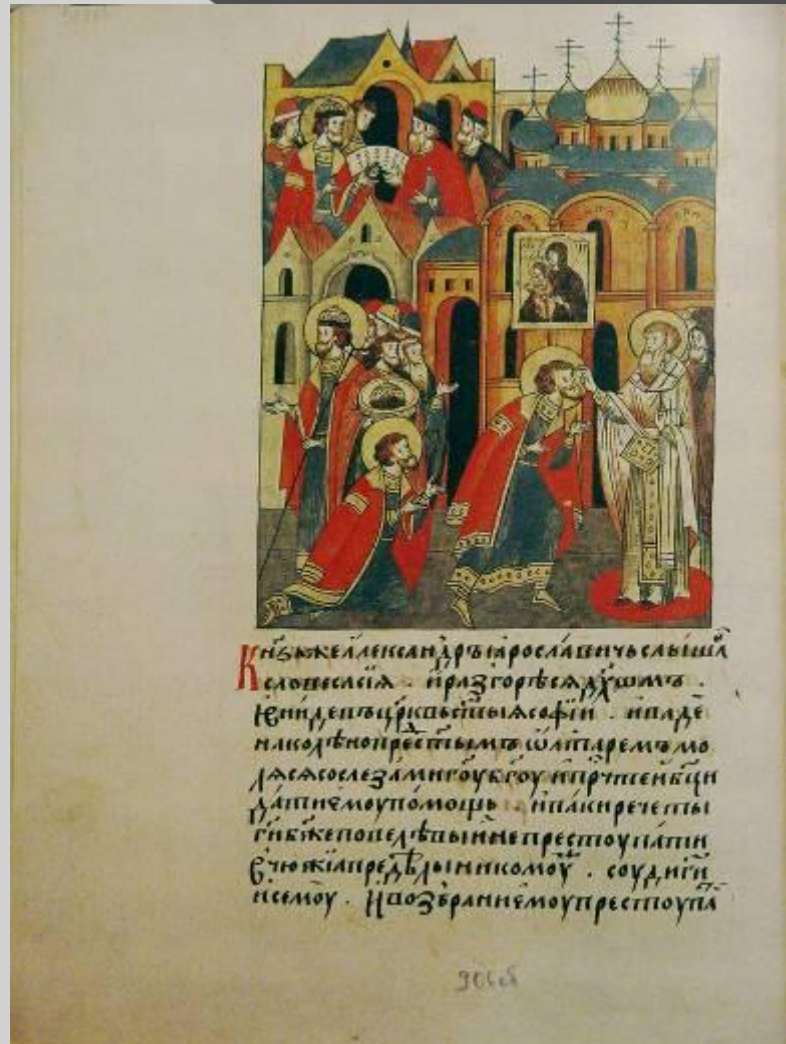 Кн҃ѕь же алеѯандръ ꙗрославичь слышⷶ
словеса сїѧ . и разгорѣсѧ дꙋхомъ .
и вниде въ црⷦ҇вь ст҃ыѧ софїи . и паде
на колѣно прⷣе ст҃ымъ ѡлтаремъ мо
лѧсѧ со слезами гоу бг҃оу и прⷱ҇тей бцⷣи
дати емоу помощь . и паки рече ты
гⷭ҇и бж҃е повелѣвый не престоупати
в чюжїѧ предѣлы никомоу . соуди гⷭ҇и
и семоу . и возбрани емоу престоупⷧ